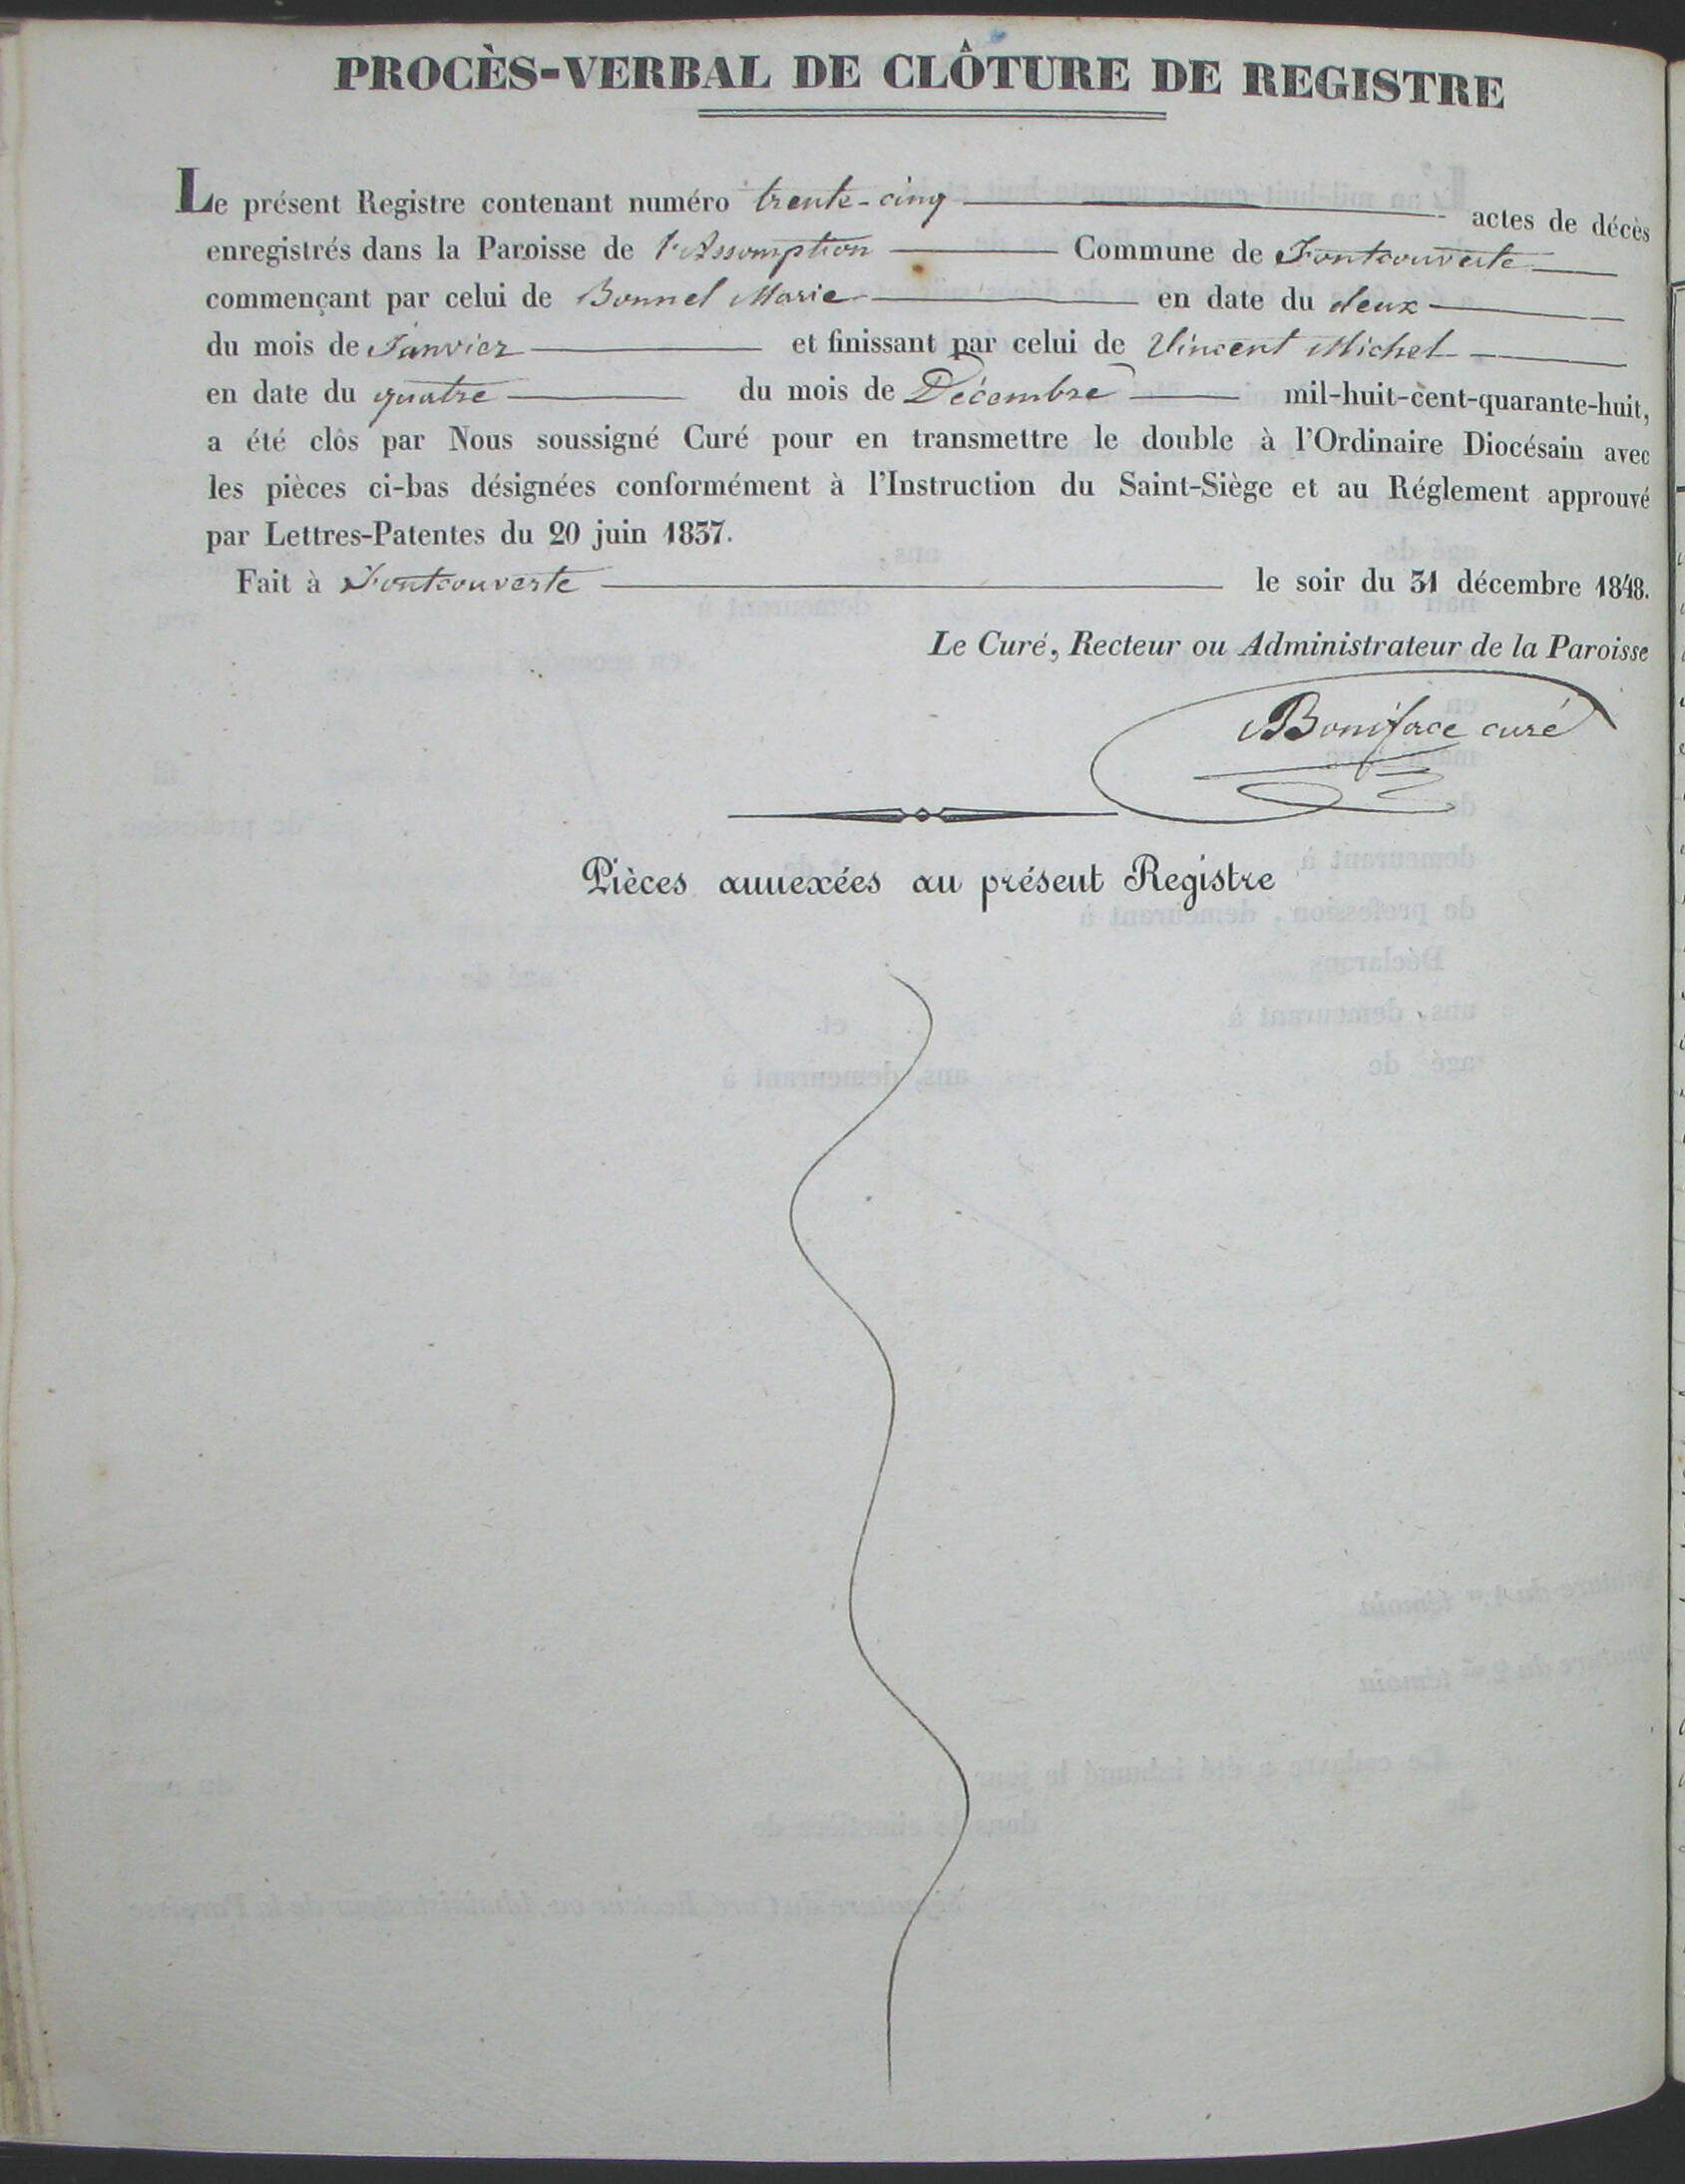 PROCÈS-VERBAL DE CLÔTURE DE REGISTRE
Le présent Registre contenant numéro trente-cinq actes de décès
enregistrés dans la Paroisse de l'Assomption Commune de Fontcouverte
commençant par celui de Bonnel Marie en date du deux
du mois de Janvier et finissant par celui de Vincent Michel
en date du quatre du mois de Décembre mil-huit-cent-quarante-huit,
a été clôs par Nous soussigné Curé pour en transmettre le double à l'Ordinaire Diocésain avec
les pièces ci-bas désignées conformément à l'Instruction du Saint-Siège et au Réglement approuvé
par Lettres-Patentes du 20 juin 1837.
Fait à Fontcouverte le soir du 31 décembre 1848.
Le Curé, Recteur ou Administrateur de la Paroisse
Boniface curé
Pièces annexées au présent Registre